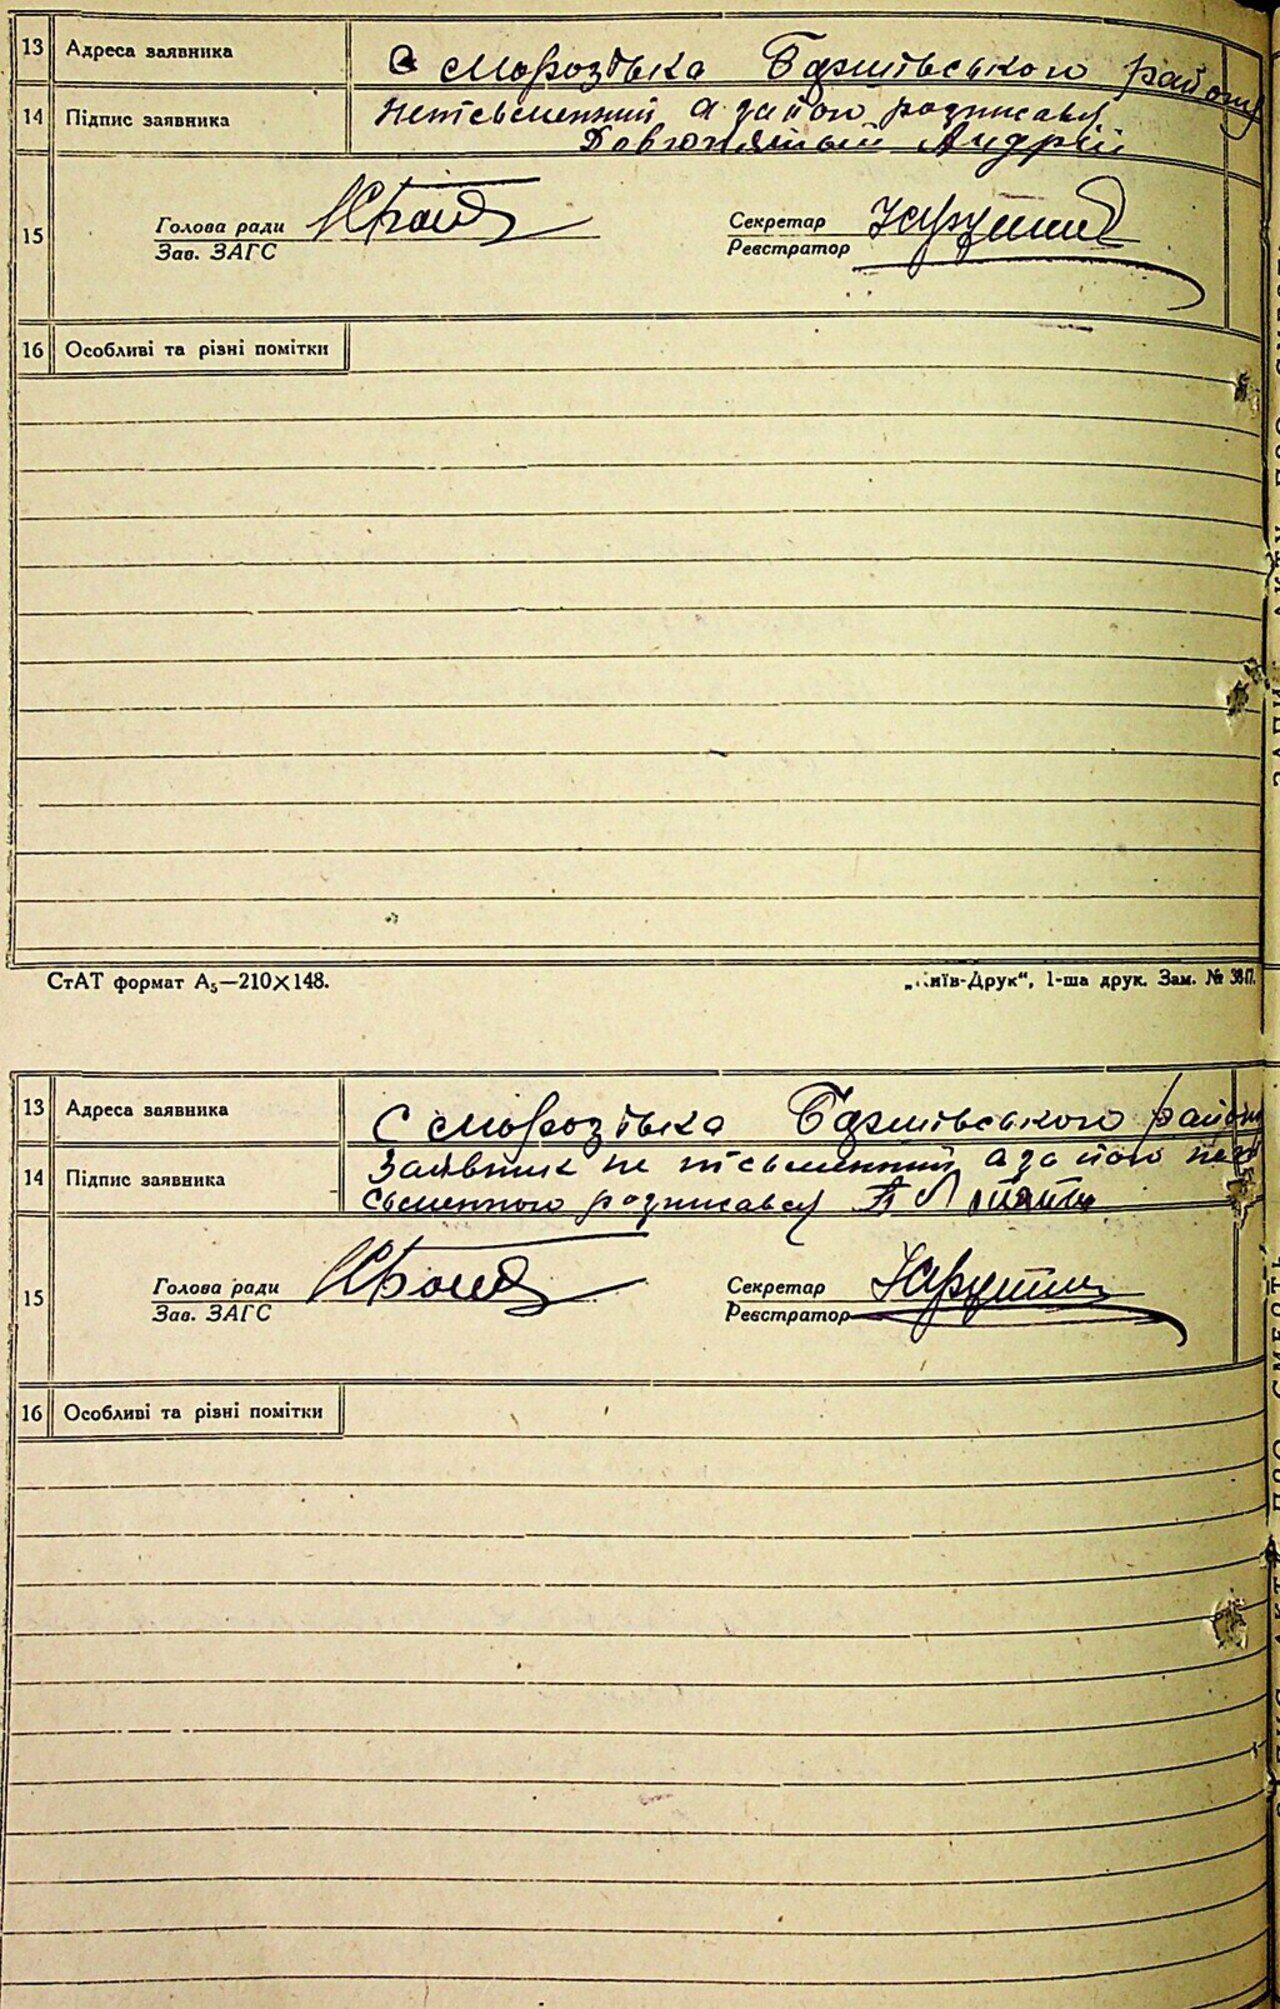 13 Адреса заявника С Морозівка Баришівського району
14 Підпис заявника Неписьменний а за його розписався
Довгопятый Андрій
15 Голова ради Секретар
Зав. ЗАГС Реєстратор
16 Особливі та різні помітки
СтАТ формат А₅—210×148. „Київ-Друк“, 1-ша друк. Зам. №
13 Адреса заявника С Морозівка Баришівського району
14 Підпис заявника Заявник не письменний а за його непи
сьменного розписався
15 Голова ради Секретар
Зав. ЗАГС Реєстратор
16 Особливі та різні помітки